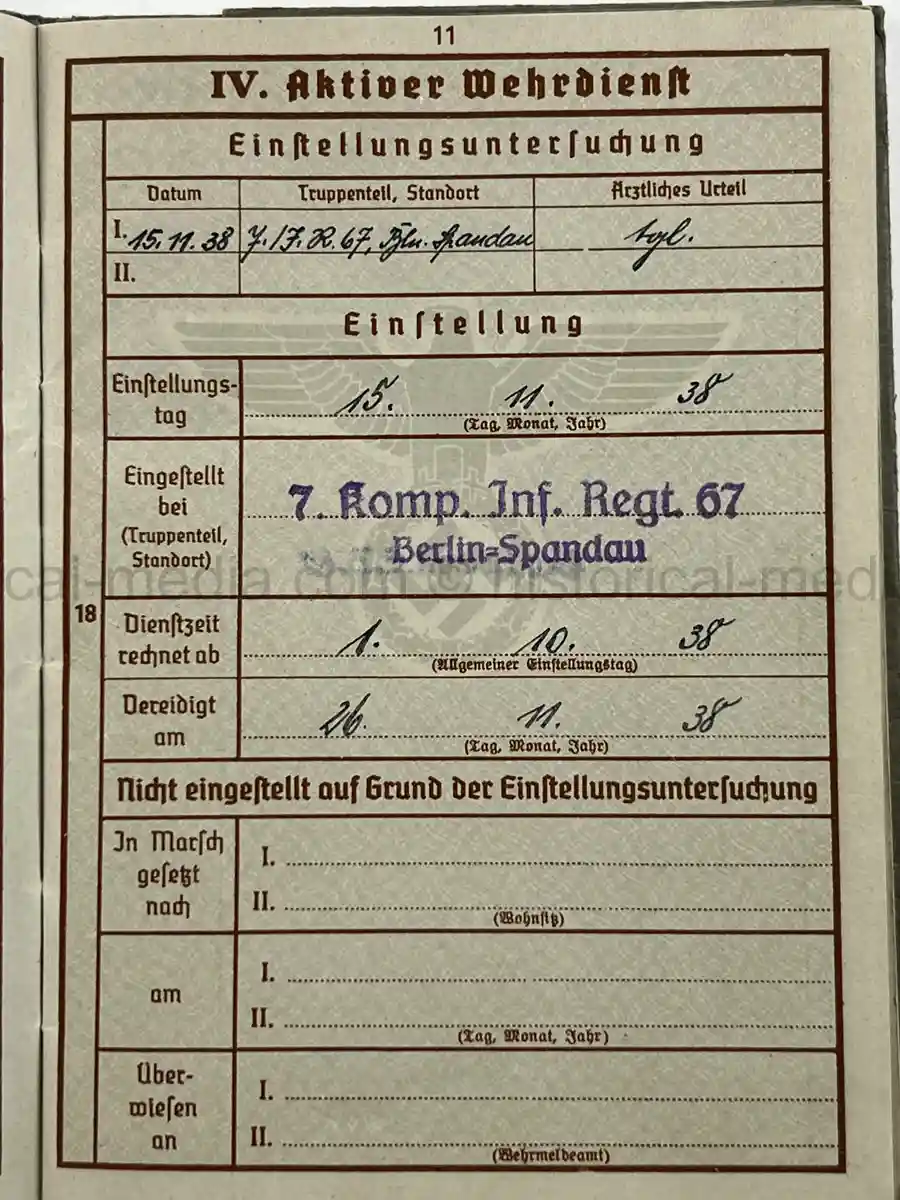 11
IV. Aktiver Wehrdienst
Einstellungsuntersuchung
Datum Truppenteil, Standort Ärztliches Urteil
I. 15. 11. 38 7./J. R. 67, Bln. Spandau tgl.
II.
Einstellung
Einstellungs-
tag
15. 11. 38
(Tag, Monat, Jahr)
Eingestellt
bei
(Truppenteil,
Standort)
7. Komp. Inf. Regt. 67
Berlin=Spandau
cal-media.com © historical-med
18
Dienstzeit
rechnet ab
1. 10. 38
(Allgemeiner Einstellungstag)
Vereidigt
am
26. 11. 38
(Tag, Monat, Jahr)
Nicht eingestellt auf Grund der Einstellungsuntersuchung
In Marsch
gesetzt
nach
I.
II.
(Wohnsitz)
am
I.
II.
(Tag, Monat, Jahr)
Über-
wiesen
an
I.
II.
(Wehrmeldeamt)